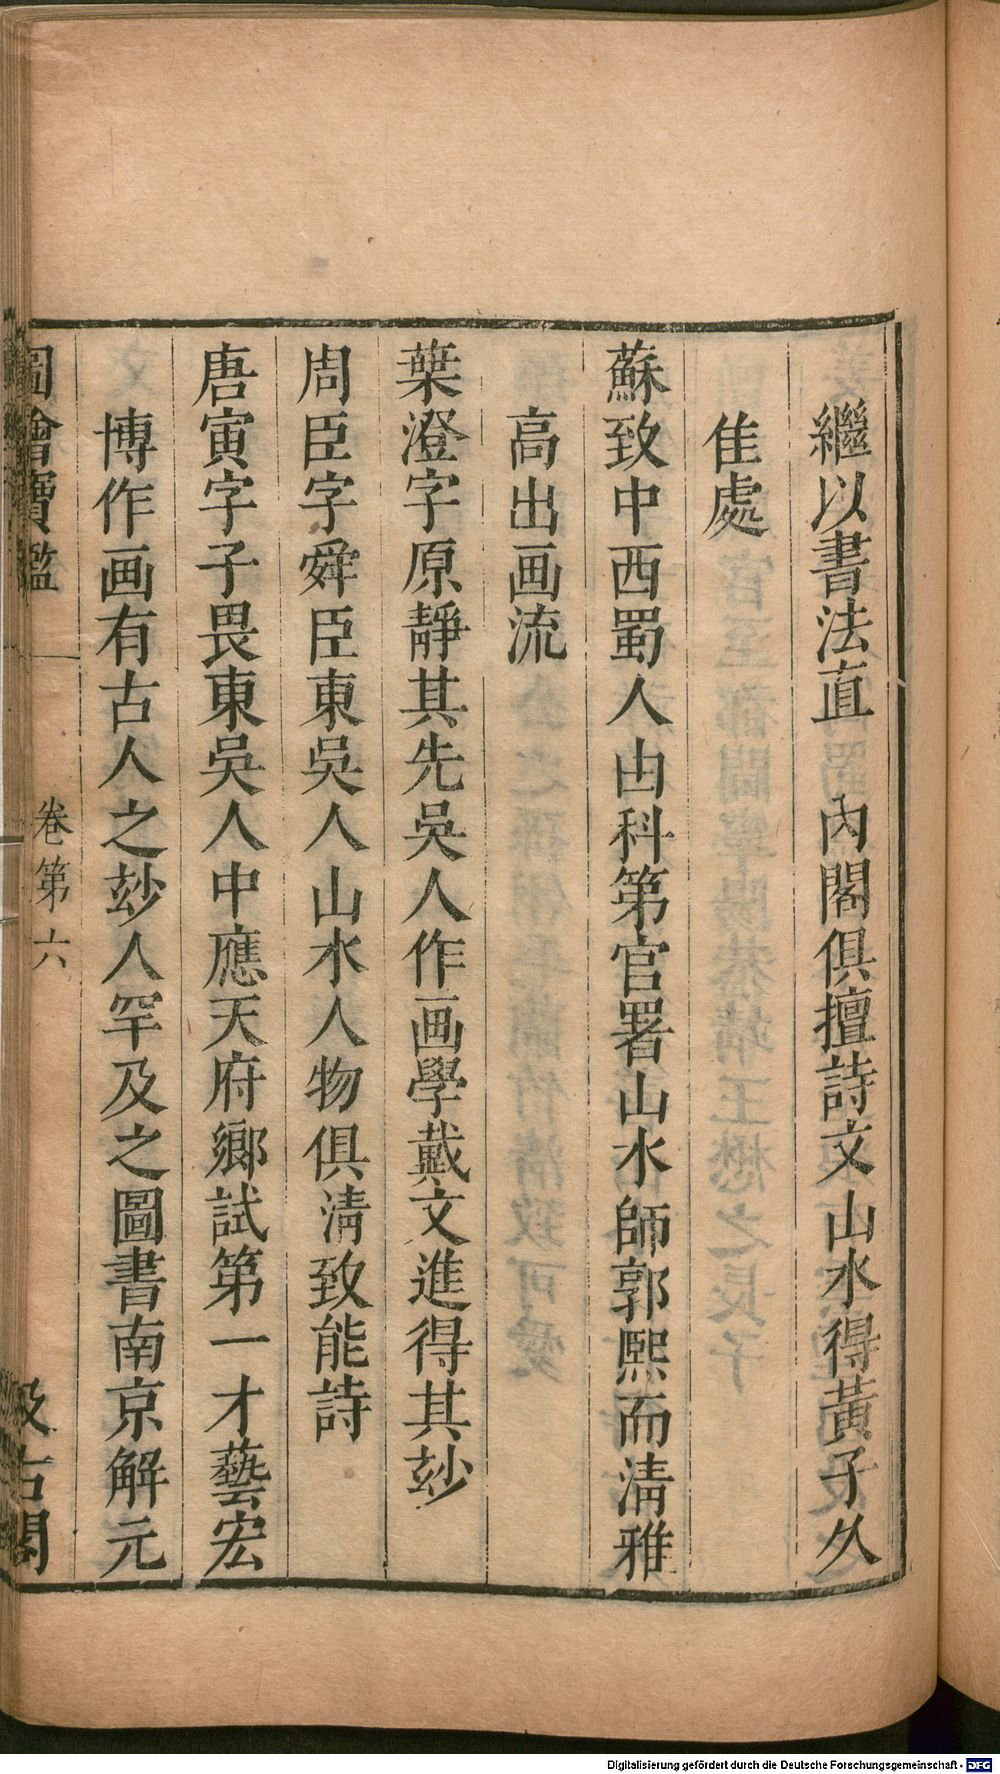 繼以書法直　內閣俱擅詩文山水得黃子久
佳處
蘇致中西蜀人由科第官署山水師郭熙而淸雅
高出画流
葉澄字原靜其先吳人作画學戴文進得其玅
周臣字舜臣東吳人山水人物俱淸致能詩
唐寅字子畏東吳人中應天府鄉試第一才藝宏
博作画有古人之玅人罕及之圖書南京解元
圖繪寶鑑 卷第六 汲古閣
Digitalisierung gefördert durch die Deutsche Forschungsgemeinschaft - DFG